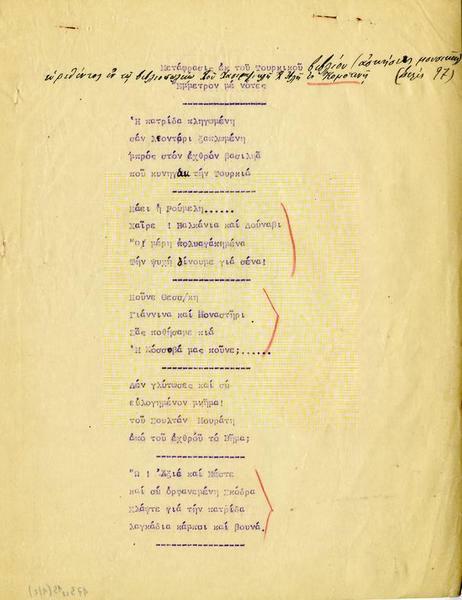 Μετάφρασις ἐκ τοῦ Τουρκικοῦ βιβλίου (ἀσκήσεις μουσικῆς)
εὑρεθέντος ἐν τῇ βιβλιοπωλείῳ τοῦ (σελὶς 97)
Ἔμμετρον μὲ νότες
Ἡ πατρίδα πληγωμένη
σάν λιοντάρι ξαπλωμένη
μπρός στόν ἐχθρόν βασιληᾶ
ποῦ κυνηγᾶ τήν Τουρκιά
Πάει ἡ Ρούμελη......
Χαῖρε ! Βαλκάνια καί Δούναβι
Ὦ! μέρη πολυαγαπημένα
Τήν ψυχή δίνουμε γιά σένα!
Ποῦνε Θεσσ/κη
Γιάννινα καί Μοναστῆρι
Σᾶς ποθήσαμε πιά
Ἡ Κόσσοβα μας ποῦνε;......
Δέν γλύτωσες καί σύ
εὐλογημένον μνῆμα!
τοῦ Σουλτάν Μουράτη
ἀπό τοῦ ἐχθροῦ τό βῆμα;
Ὤ ! Ἀξιέ καί Μέστε
καί σύ ὀρφανεμένη Σκόδρα
Κλάψτε γιά τήν πατρίδα
λαγκάδια κάμποι καί βουνά.